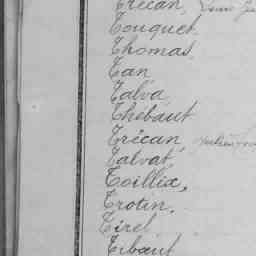 Trécan,
Touquet
Thomas
Tan
Talva
Thébaut
Trécan,
Talvat,
Toillix,
Trotin,
Tirel
Tibaut